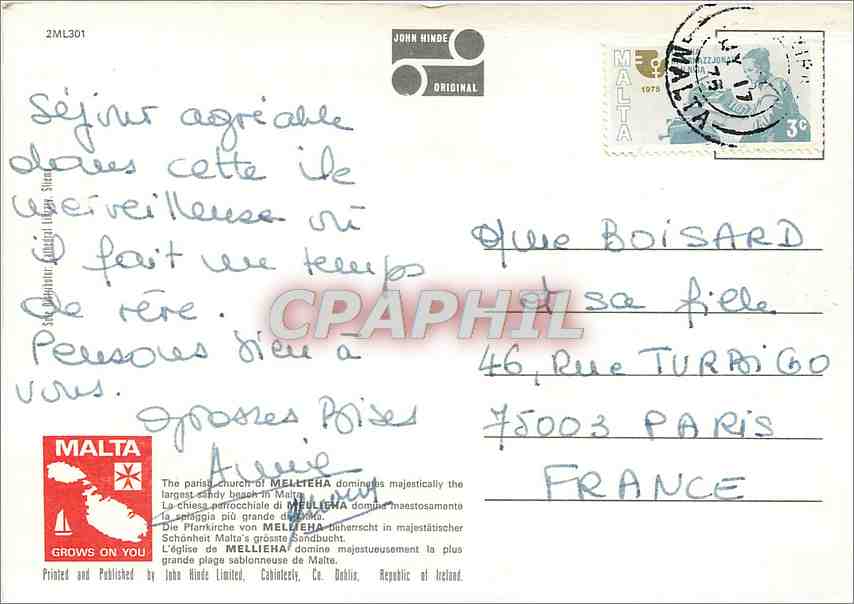 2ML301
JOHN HINDE
ORIGINAL
MALTA
1975
3c
MALTA
17
75
Séjour agréable
dans cette île
merveilleuse où
il fait un temps
de rêve.
Pensons bien à
vous.
Grosses Bises
Annie
Mme BOISARD
et sa fille
46, Rue TURBIGO
75003 PARIS
FRANCE
CPAPHIL
Sole Distributor: Cathedral Library, Sliema
MALTA
GROWS ON YOU
The parish church of MELLIEHA dominates majestically the
largest sandy beach in Malta.
La chiesa parrocchiale di MELLIEHA domina maestosamente
la spiaggia più grande di Malta.
Die Pfarrkirche von MELLIEHA beherrscht in majestätischer
Schönheit Malta's grösste Sandbucht.
L'église de MELLIEHA domine majestueusement la plus
grande plage sablonneuse de Malte.
Printed and Published by John Hinde Limited, Cabinteely, Co. Dublin, Republic of Ireland.